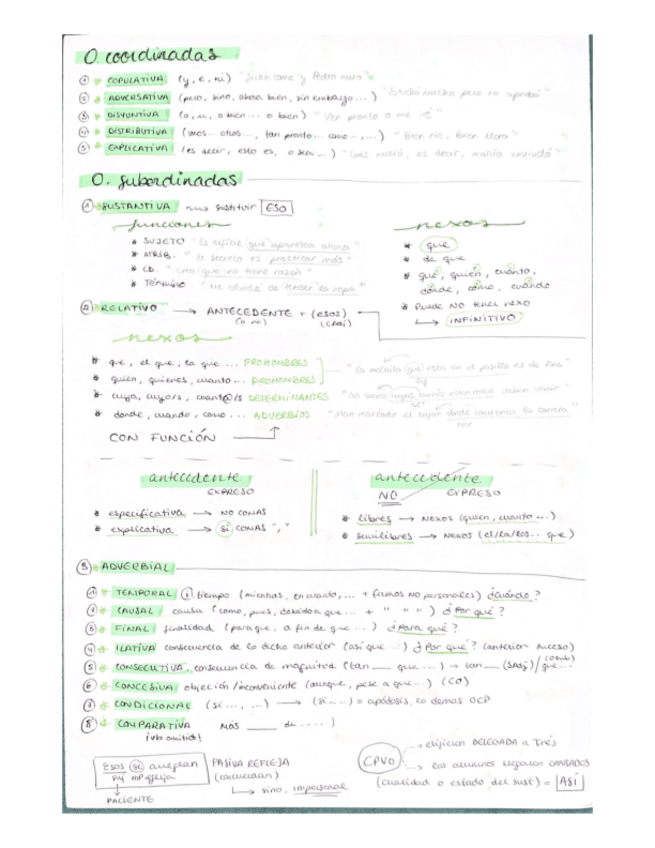 O. coordinadas
① COPULATIVA (y, e, ni) "Juan come y Pedro mira"
② ADVERSATIVA (pero, sino, ahora bien, sin embargo...) "Estudió mucho pero no aprobó"
③ DISYUNTIVA (o, u, o bien... o bien) "Ven pronto o me iré"
④ DISTRIBUTIVA (unos... otros..., tan pronto... como..., ...) "Bien ríe, Bien llora"
⑤ EXPLICATIVA (es decir, esto es, o sea...) es decir, María enviudó"
O. subordinadas
① SUSTANTIVA sustituir ESO
funciones
* SUJETO "Es difícil que aparezca ahora"
* ATRIB. "El secreto es practicar más"
* CD. "Creo que no tiene razón"
* Término "Me olvidé de tender la ropa"
nexos
* que
* de que
* qué, quién, cuánto,
dónde, cómo, cuándo
* Puede NO tener nexo
→ INFINITIVO
② RELATIVO → ANTECEDENTE + (esos)
(o no)
nexos
* que, el que, la que ... PRONOMBRES
* quien, quienes, cuanto ... PRONOMBRES
* cuya, cuyo/s, cuant@/s DETERMINANTES
* donde, cuando, como ... ADVERBIOS
CON FUNCIÓN
"La mochila que está en el pasillo es de Ana"
deben venir"
"Han marcado el lugar donde comienza la carrera"
antecedente
EXPRESO
* especificativa → NO COMAS
* explicativa → SÍ COMAS ","
antecedente
NO EXPRESO
* libres → NEXOS (quien, cuanto ...)
* semilibres → NEXOS (el/la/los... que)
③ ADVERBIAL
① TEMPORAL tiempo (mientras, en cuanto, ... + formas no personales) ¿Cuándo?
② CAUSAL causa (como, pues, debido a que ... + " " ") ¿Por qué?
③ FINAL finalidad (para que, a fin de que ...) ¿Para qué?
④ ILATIVA consecuencia de lo dicho anterior (así que ...) ¿Por qué? (anterior suceso)
⑤ CONSECUTIVA consecuencia de magnitud (tan ___ que ...) → tan ___ (SAdj)/que...
⑥ CONCESIVA objeción/inconveniente (aunque, pese a que...) (CO)
⑦ CONDICIONAL (si ..., ...) → (si ...) = apódosis, lo demás OCP
⑧ COMPARATIVA MÁS ___ de ....)
¡vb omitido!
PACIENTE
PASIVA REFLEJA
(concuerdan)
→ sino, impersonal
CPVO
eligieron DELEGADA a Inés
Los alumnos llegaron CANSADOS
(cualidad o estado del sust) = ASÍ